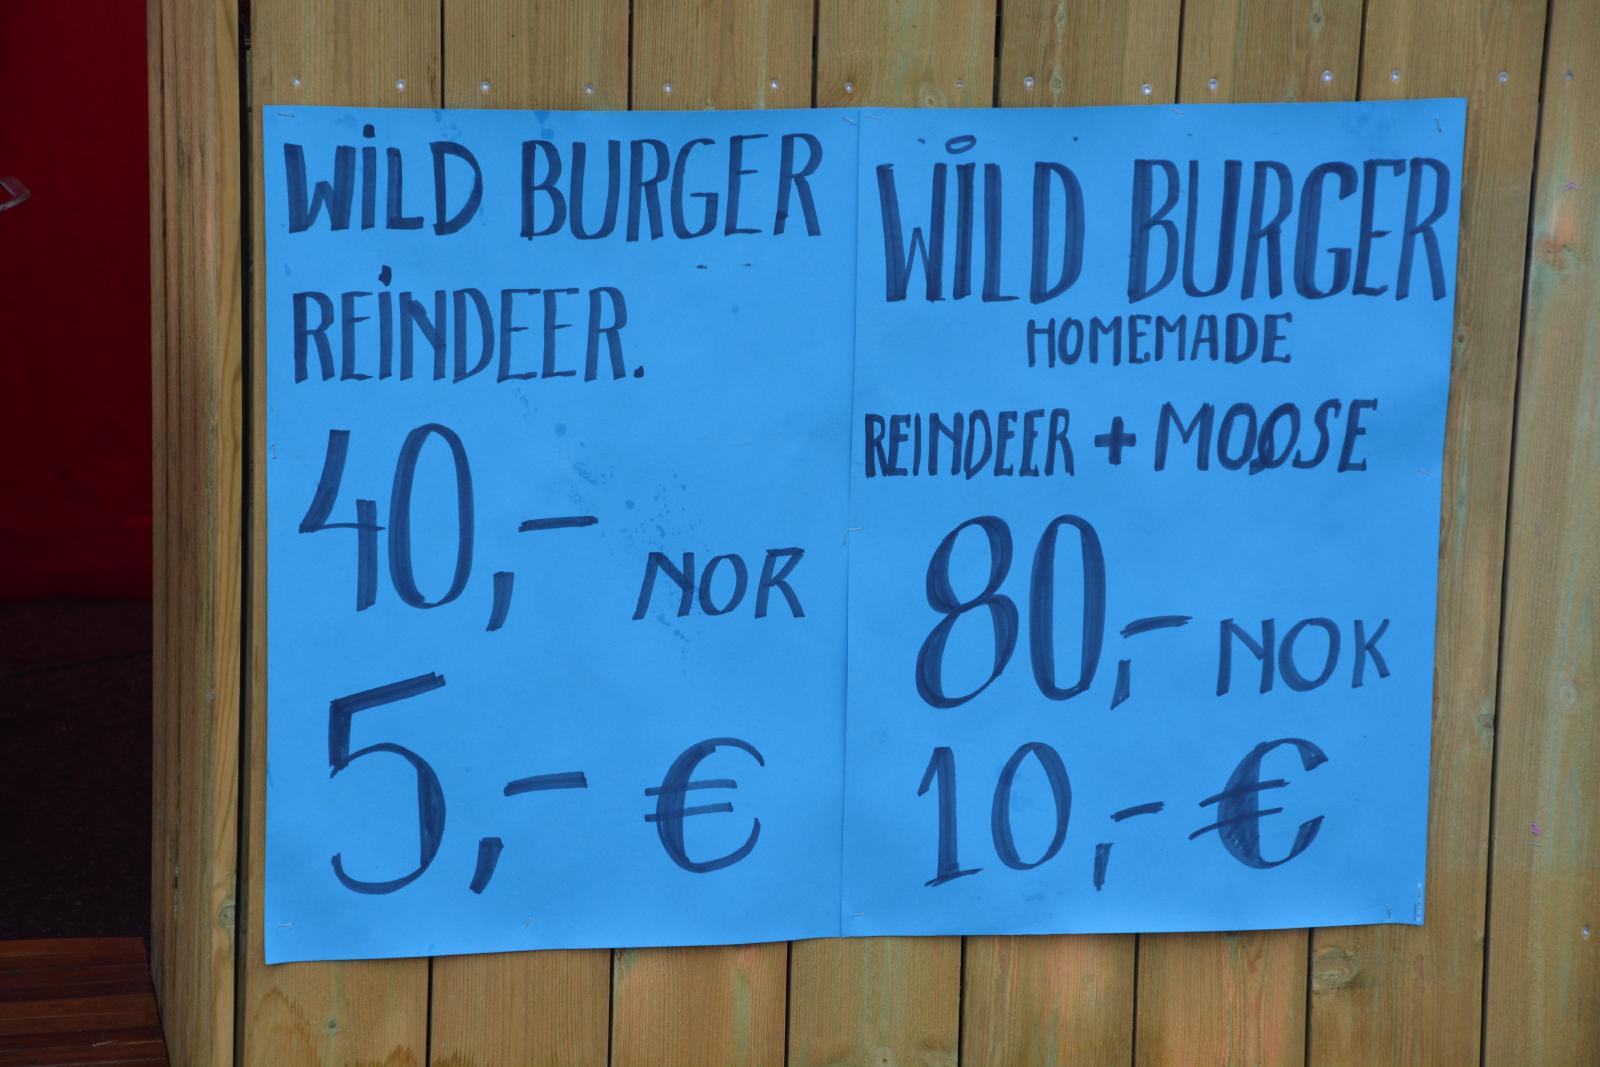 WiLD BURGER
REiNDEER.
40,- NOR
5,- €
WiLD BURGER
HOMEMADE
REINDEER + MOOSE
80,- NOK
10,- €